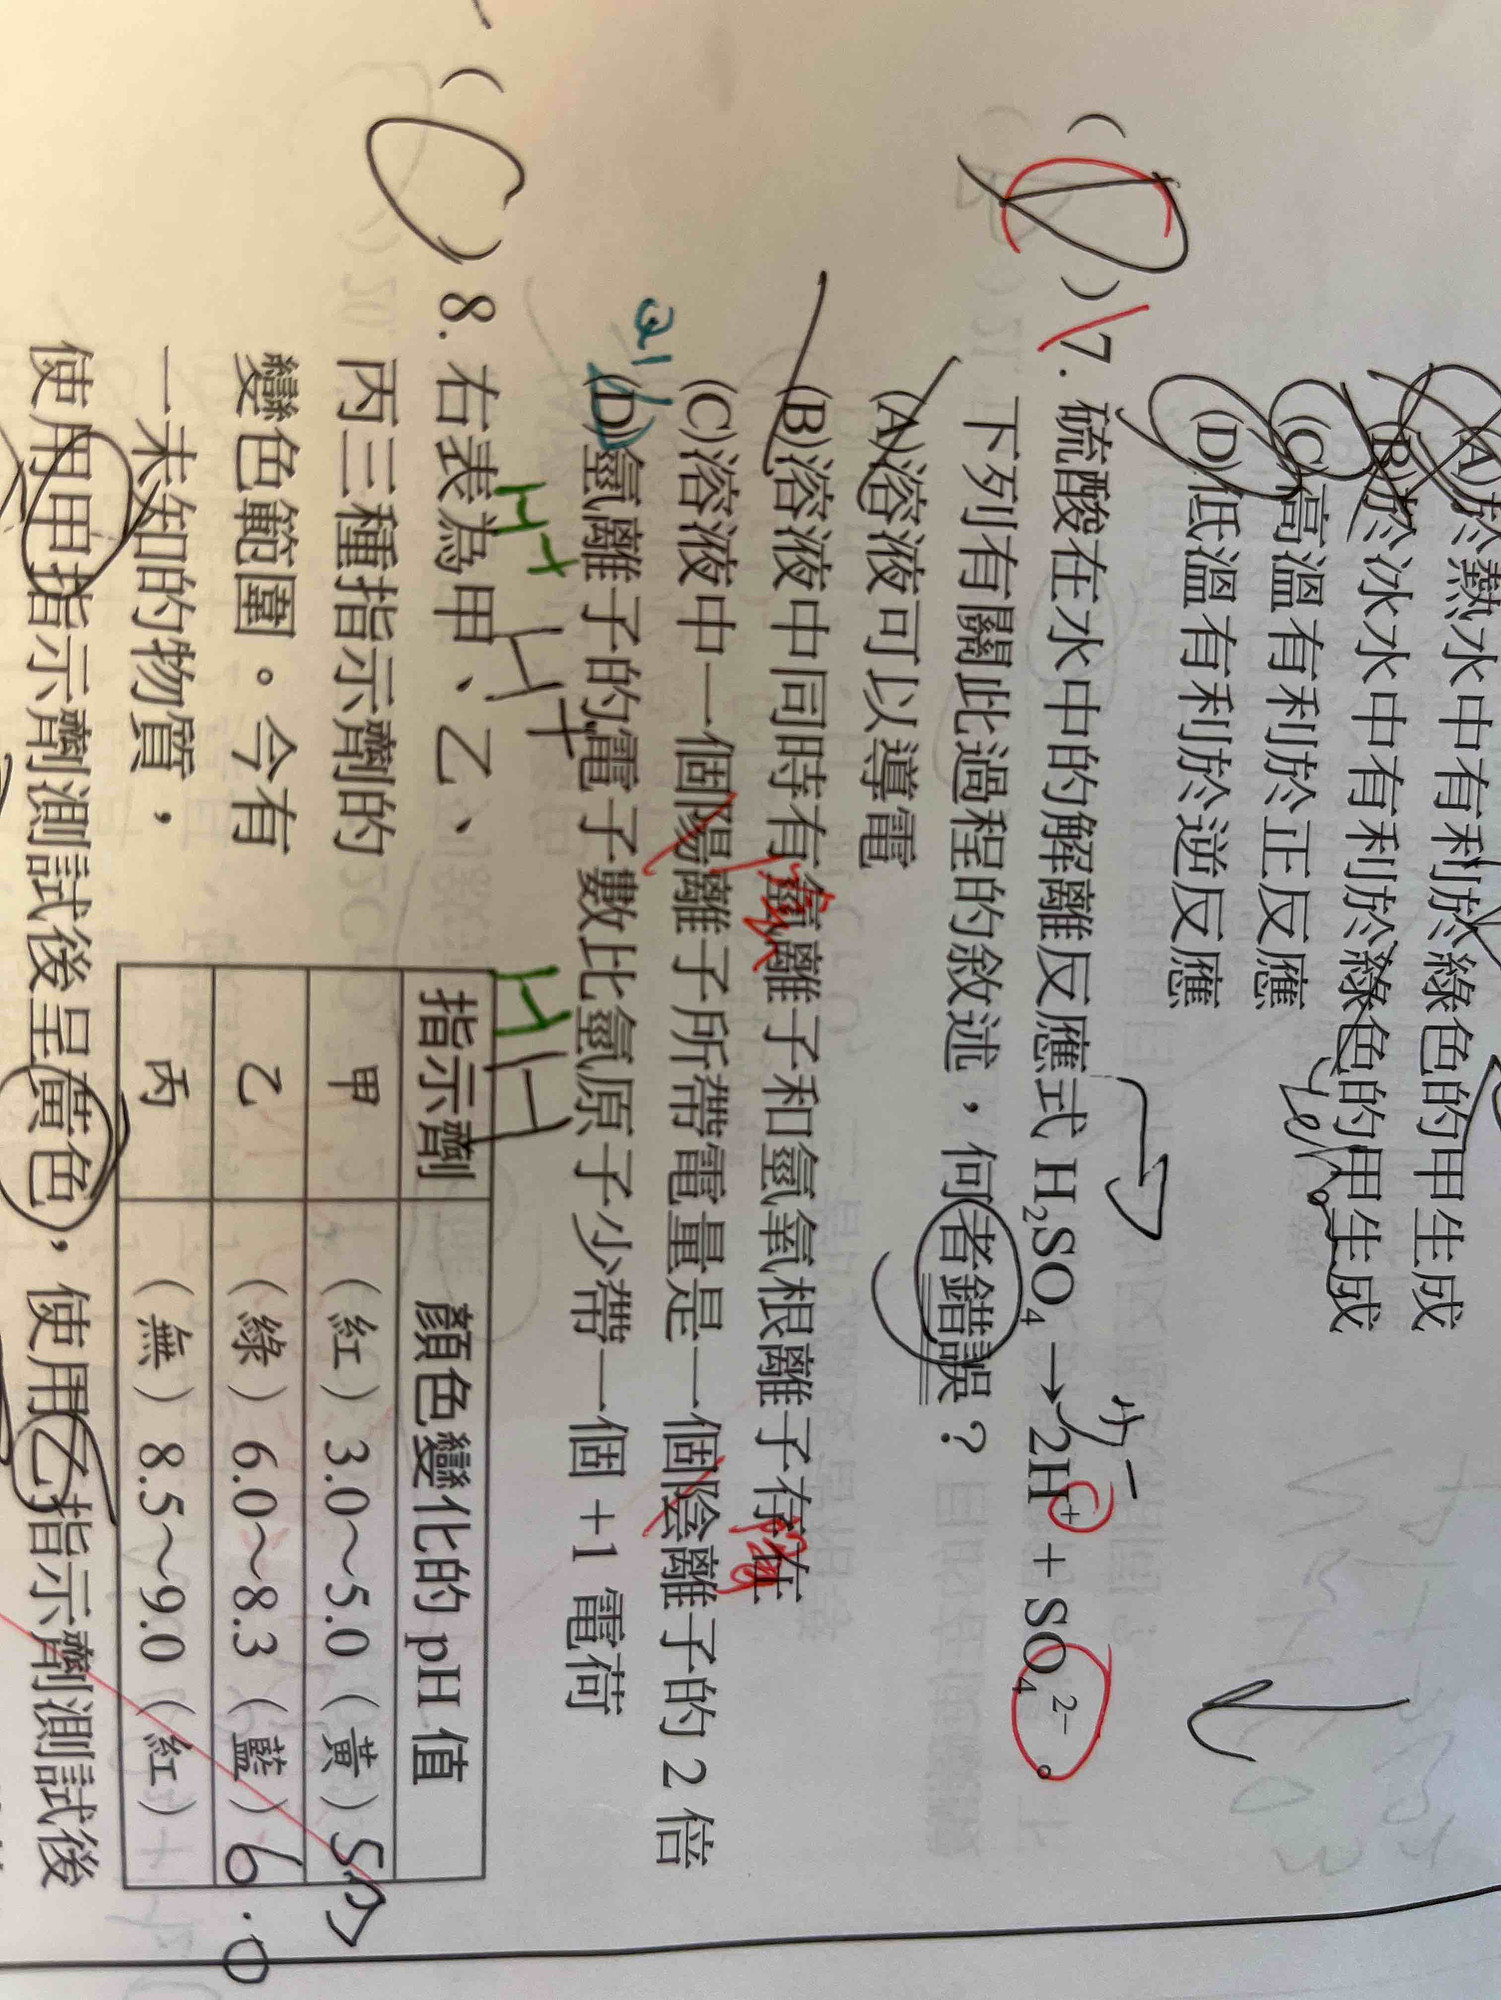 (A)於熱水中有利於綠色的甲生成
(B)於冰水中有利於綠色的甲生成
(C)高溫有利於正反應
(D)低溫有利於逆反應
( D ) 7. 硫酸在水中的解離反應式 H₂SO₄ → 2H⁺ + SO₄²⁻。
下列有關此過程的敘述，何者錯誤？
(A)溶液可以導電
(B)溶液中同時有氫離子和氫氧根離子存在
(C)溶液中一個陽離子所帶電量是一個陰離子的 2 倍
(D)氫離子的電子數比氫原子少帶一個 +1 電荷
H+ H
H+ H
( C ) 8. 右表為甲、乙、
丙三種指示劑的
變色範圍。今有
一未知的物質，
指示劑 顏色變化的 pH 值
甲 （紅）3.0～5.0（黃）5
乙 （綠）6.0～8.3（藍）6.0
丙 （無）8.5～9.0（紅）
使用甲指示劑測試後呈黃色，使用乙指示劑測試後